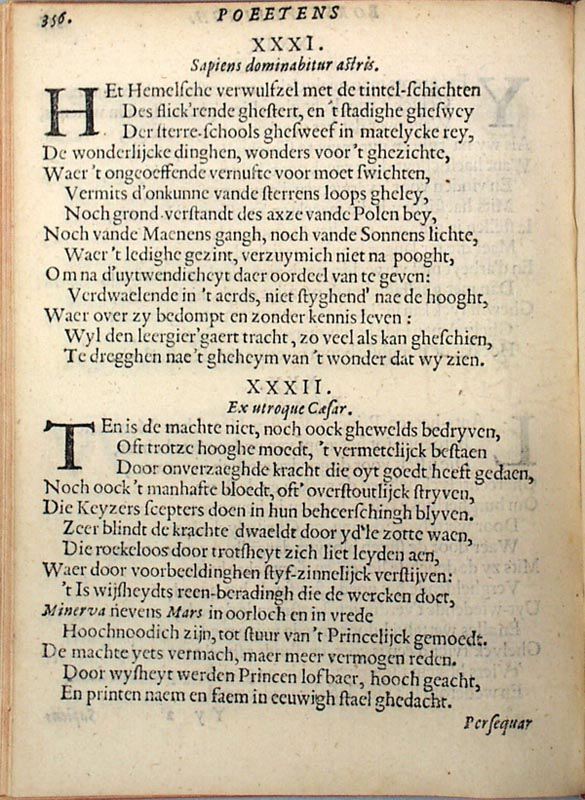 356.
POEETENS
XXXI.
Sapiens dominabitur astris.
HEt Hemelsche verwulfzel met de tintel-schichten
Des flick'rende ghestert, en 't stadighe ghesweye
Der sterre-schools ghesweef in matelycke rey,
De wonderlijcke dinghen, wonders voor 't ghezichte,
Waer 't ongeoeffende vernufte voor moet swichten,
Vermits d'onkunne vande sterrens loops gheley,
Noch grond-verstandt des axze vande Polen bey,
Noch vande Maenens gangh, noch vande Sonnens lichte,
Waer 't ledighe gezint, verzuymich niet na pooght,
Om na d'uytwendicheyt daer oordeel van te geven:
Verdwaelende in 't aerds, niet styghend' nae de hooght,
Waer over zy bedompt en zonder kennis leven:
Wyl den leergier'gaert tracht, zo veel als kan gheschien,
Te dregghen nae 't gheheym van 't wonder dat wy zien.
XXXII.
Ex utroque Cæsar.
TEn is de machte niet, noch oock ghewelds bedryven,
Oft trotze hooghe moedt, 't vermetelijck bestaen
Door onverzaeghde kracht die oyt goedt heeft gedaen,
Noch oock 't manhafte bloedt, oft' overstoutlijck stryven,
Die Keyzers scepters doen in hun beheerschingh blyven.
Zeer blindt de krachte dwaeldt door yd'le zotte waen,
Die roekeloos door trotsheyt zich liet leyden aen,
Waer door voorbeeldinghen styf-zinnelijck verstijven:
't Is wijsheydts reen-beradingh die de wercken doet,
Minerva nevens Mars in oorloch en in vrede
Hoochnoodich zijn, tot stuur van 't Princelijck gemoedt.
De machte yets vermach, maer meer vermogen reden.
Door wysheyt werden Princen lofbaer, hooch geacht,
En printen naem en faem in eeuwigh stael ghedacht.
Persequar